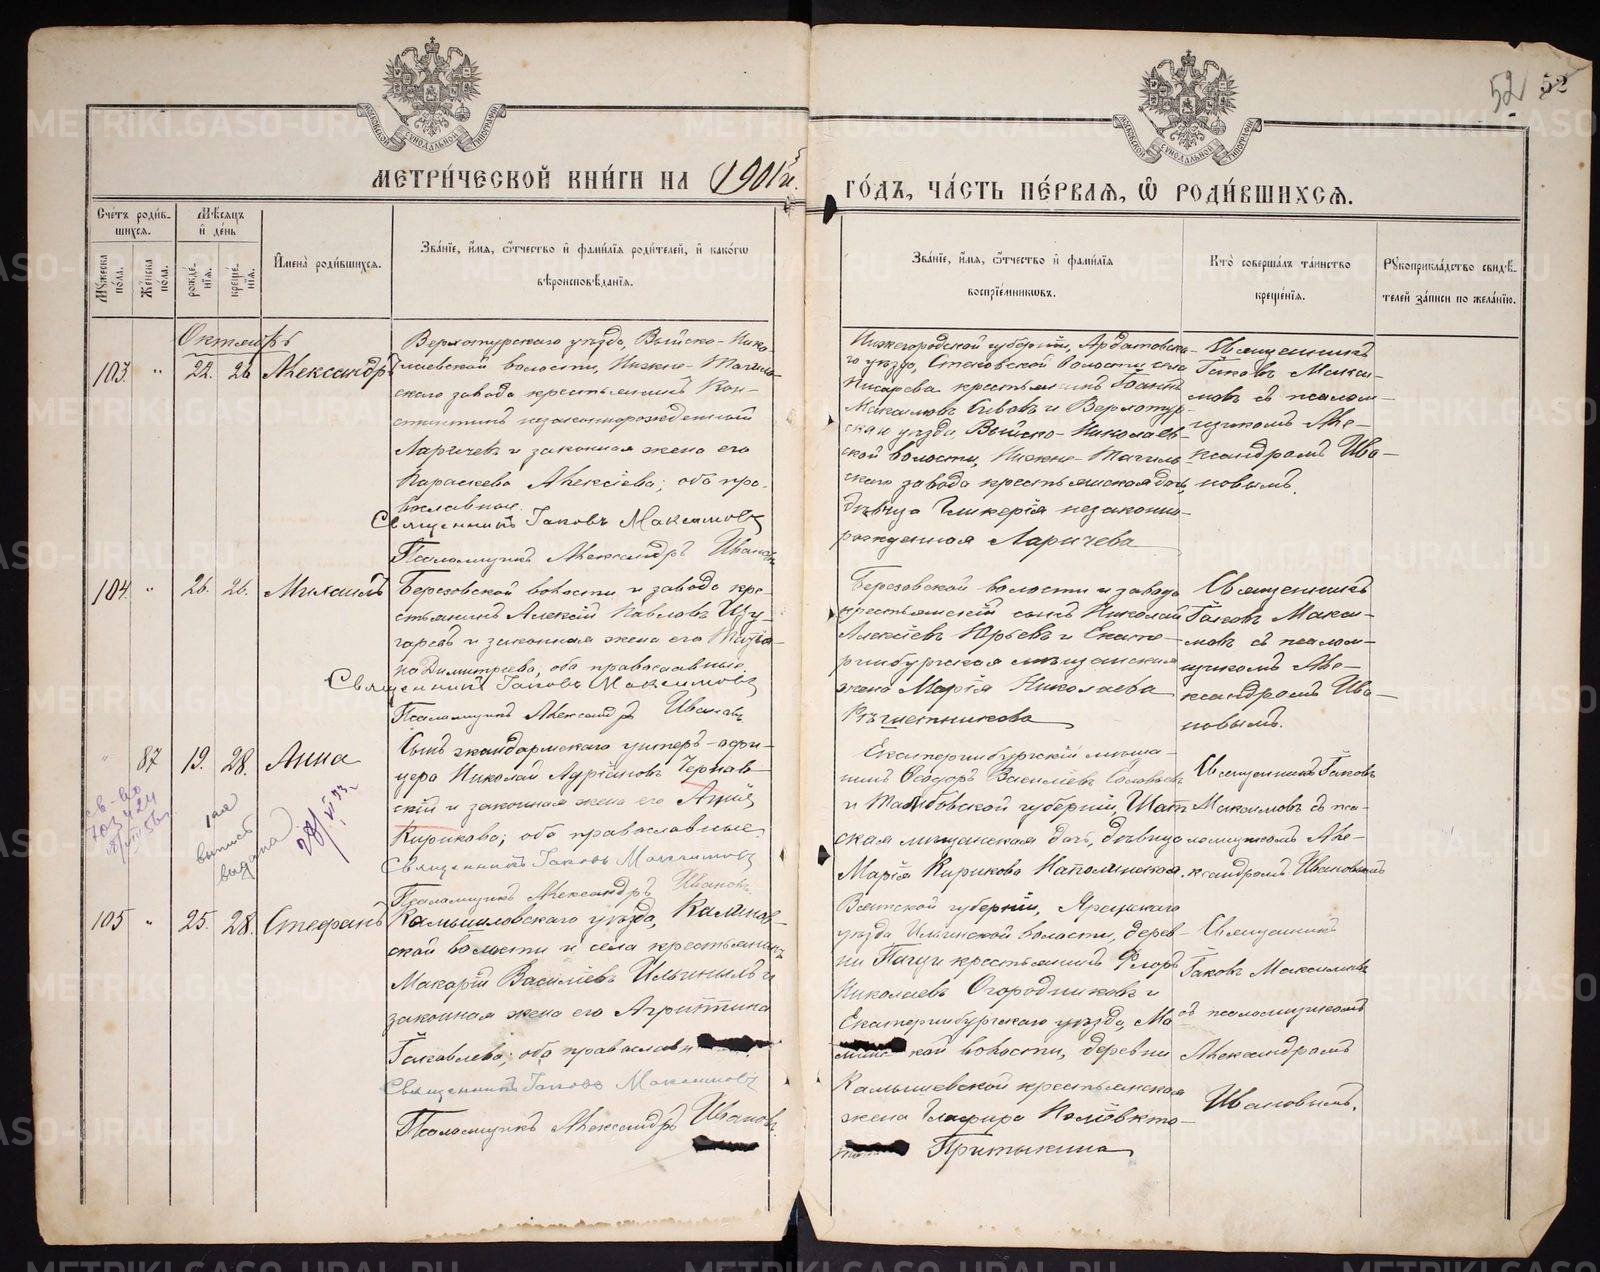 52 52
МЕТРИ́ЧЕСКОЙ КНИ́ГИ НА 1901й. ГО́ДЪ, ЧА́СТЬ ПЕ́РВАѦ, Ѽ РОДИ́ВШИХСѦ.
Сче́тъ роди́в-
шихсѧ.
Мѣ́сѧцъ
и҆ де́нь
Мꙋ́жеска по́ла.
Же́нска по́ла.
рожде́-
нїѧ.
креще́-
нїѧ.
И҆мена̀ роди́вшихсѧ.
Зва́нїе, и҆́мѧ, ѻ҆́тчество и҆ фами́лїѧ роди́телей, и҆ како́гѡ
вѣроисповѣ́данїѧ.
Зва́нїе, и҆́мѧ, ѻ҆́тчество и҆ фами́лїѧ
воспрїе́мникѡвъ.
Кто̀ соверша́лъ та́инство
креще́нїѧ.
Рꙋкоприкла́дство свидѣ́-
телей за́писи по жела́нїю.
Октябрь
103. " 22. 26 Александръ
Верхотурскаго уѣзда, Выйско-Нико-
лаевской волости, Нижне-Тагиль-
скаго завода крестьянинъ Кон-
стантинъ незаконнорожденный
Ларичевъ и законная жена его
Параскева Алексіева; оба пра-
вославные.
Священникъ Іаковъ Максимовъ
Псаломщикъ Александръ Ивановъ
Нижегородской губерніи, Ардатовска-
го уѣзда, Стексовской волости, села
Писарева крестьянинъ Іоаннъ
Максимовъ Сивовъ и Верхотур-
скаго уѣзда, Выйско-Николаев-
ской волости, Нижне-Тагиль-
скаго завода крестьянская дочь,
дѣвица Гликерія незаконно-
рожденная Ларичева
Священникъ
Іаковъ Макси-
мовъ съ псалом-
щикомъ Але-
ксандромъ Ива-
новымъ.
104. " 26. 26. Михаилъ
Березовской волости и завода кре-
стьянинъ Алексій Павловъ
и законная жена его Татіа-
на Димитріева, оба православные.
Священникъ Іаковъ Максимовъ
Псаломщикъ Александръ Ивановъ
Березовской волости и завода
крестьянскій сынъ Николай
Алексіевъ Юрьевъ и Екате-
ринбургская мѣщанская
жена Марія Николаева
Рѣшетникова
Священникъ
Іаковъ Макси-
мовъ съ псалом-
щикомъ Але-
ксандромъ Ива-
новымъ.
" 87 19. 28. Анна
Сынъ жандармскаго унтеръ-офи-
цера Николай Адріановъ Черняв-
скій и законная жена его Агнія
Кирикова; оба православные.
Священникъ Іаковъ Максимовъ
Псаломщикъ Александръ Ивановъ.
Екатеринбургскій мѣща-
нинъ Ѳеодоръ Василіевъ Соловьевъ
и Тамбовской губерніи, Шац-
ская мѣщанская дочь, дѣвица
Марія Кирикова
Священникъ Іаковъ
Максимовъ съ пса-
ломщикомъ Але-
ксандромъ Ивановымъ
св-во
703424
1ая
выпись
выдана
105 " 25. 28. Стефанъ
Камышловскаго уѣзда, Калинов-
ской волости и села крестьянинъ
Макарій Василіевъ Ильиныхъ и
законная жена его Агриппина
Іаковлева; оба православн
Священникъ Іаковъ Максимовъ
Псаломщикъ Александръ Ивановъ.
Вятской губерніи, Яранскаго
уѣзда Ильинской волости, дерев-
ни крестьянинъ Флоръ
Николаевъ Огородниковъ и
Екатеринбургскаго уѣзда, Ма-
минской волости, деревни
Камышевской крестьянская
жена Глафира
Притыкина
Священникъ
Іаковъ Максимовъ
съ псаломщикомъ
Александромъ
Ивановымъ.
METRIKI.GASO-URAL.RU